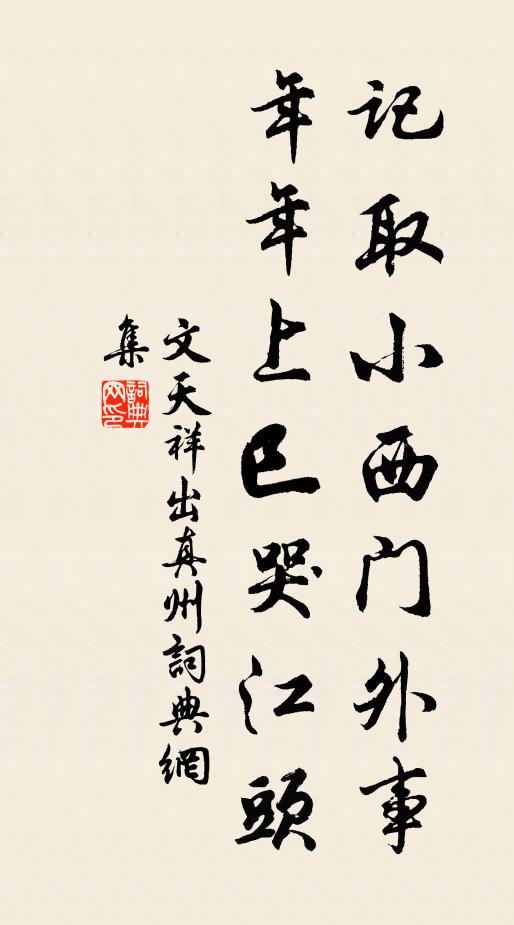 记取小西门外事
年年上巳哭江頭
文天祥出真州詞典網
集
詞典
网印